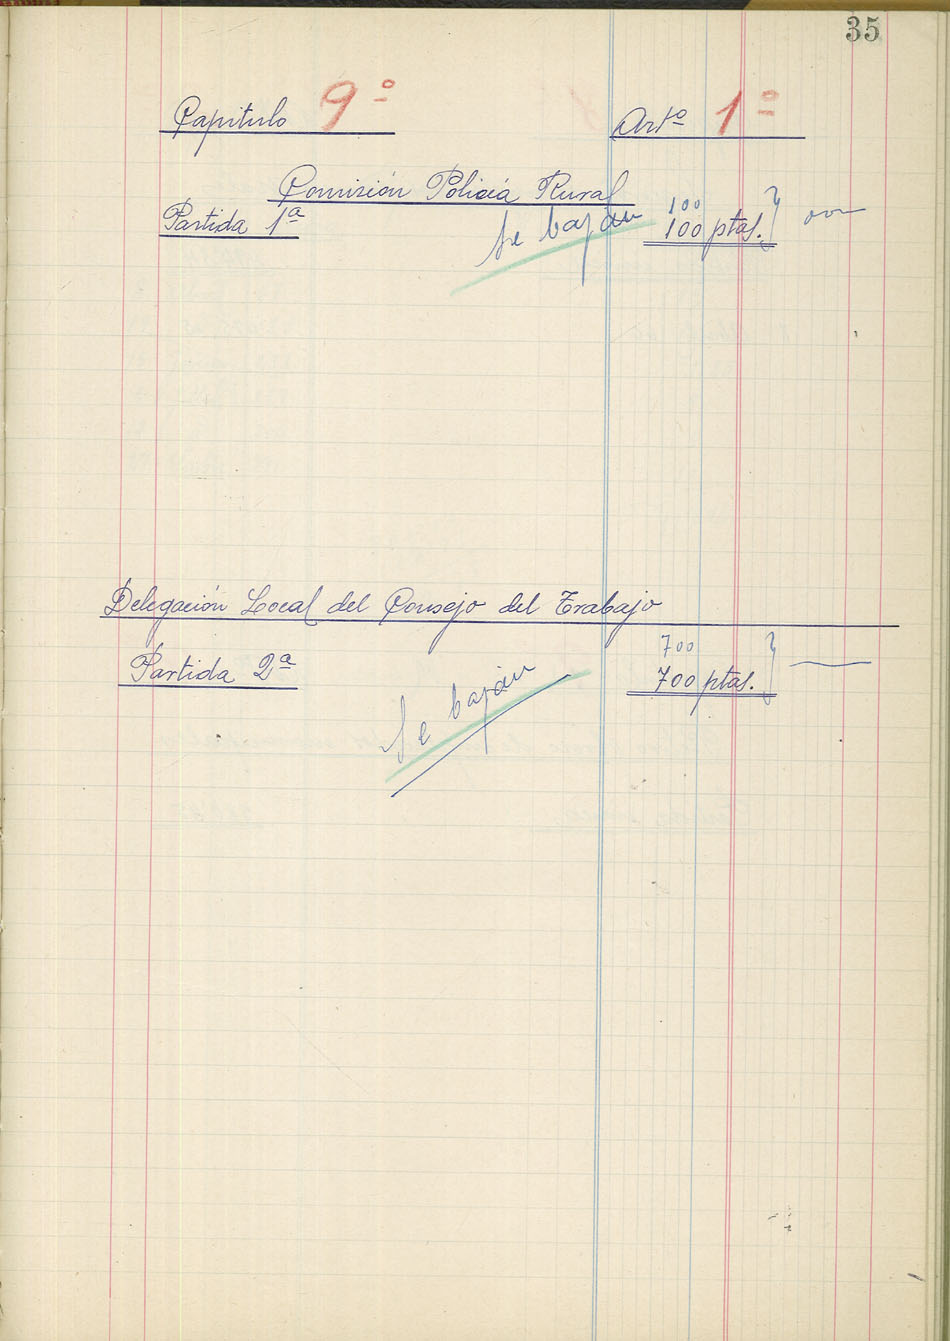 35
Capitulo 9º Artº 1º
Comisión Policia Rural
100
Partida 1ª Se bajan 100 ptas.
Delegación Local del Consejo del Trabajo
700
Partida 2ª Se bajan 700 ptas.